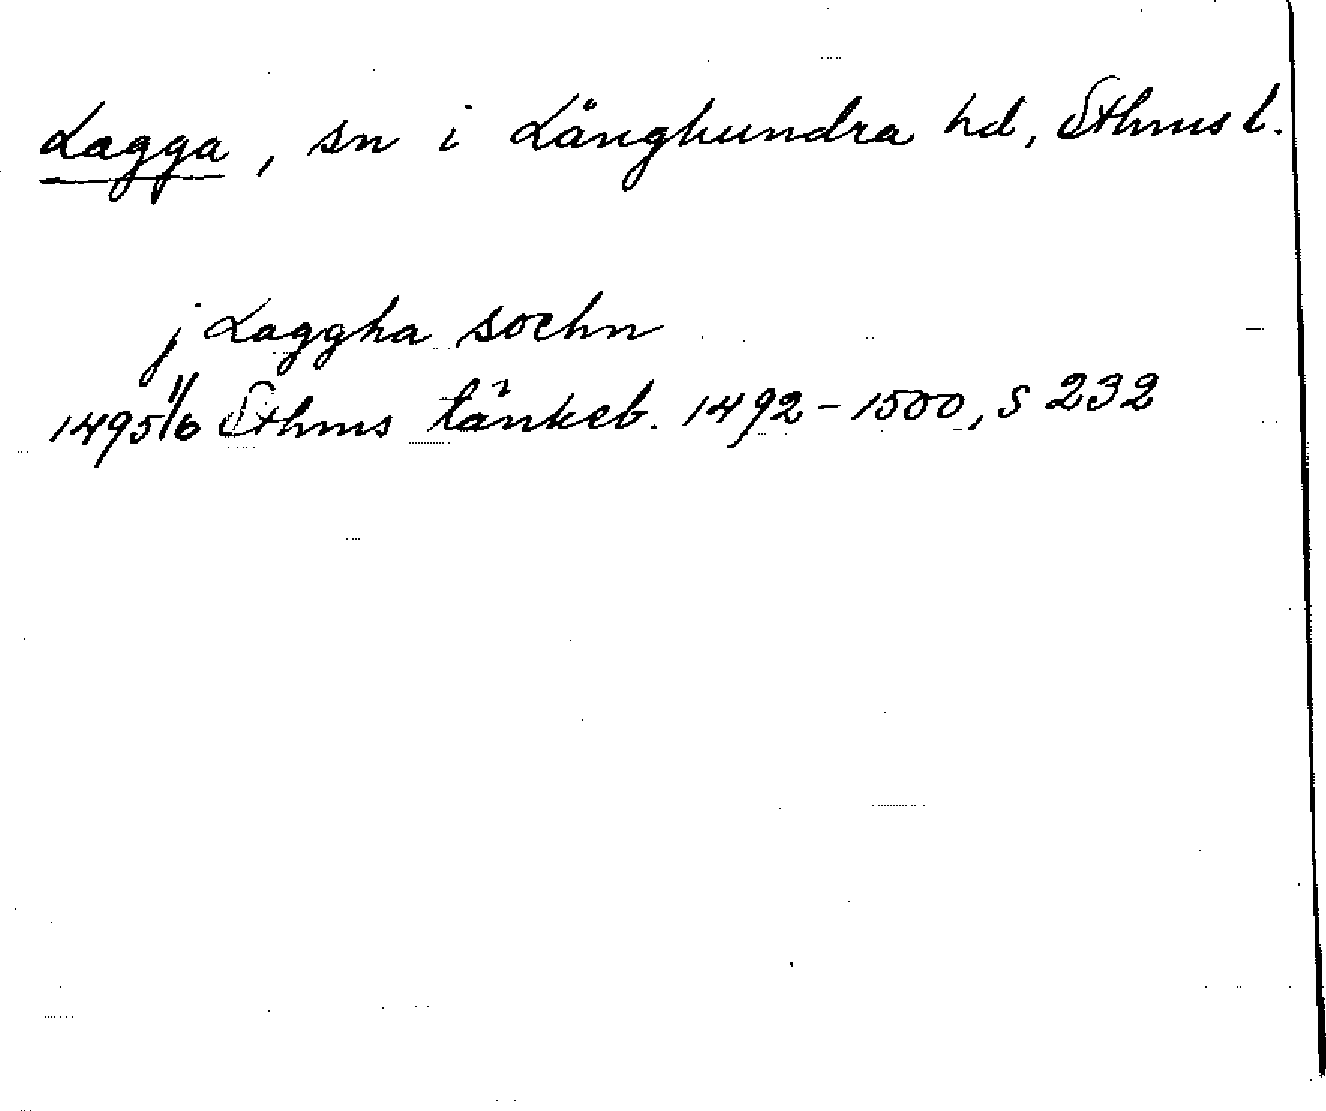 Lagga, sn i Långhundra hd, Sthms l.
j Laggha sochn
1495 11/6 Sthms tänkeb. 1492-1500, s 232